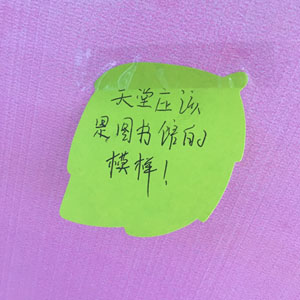 天堂应该
是图书馆的
模样！